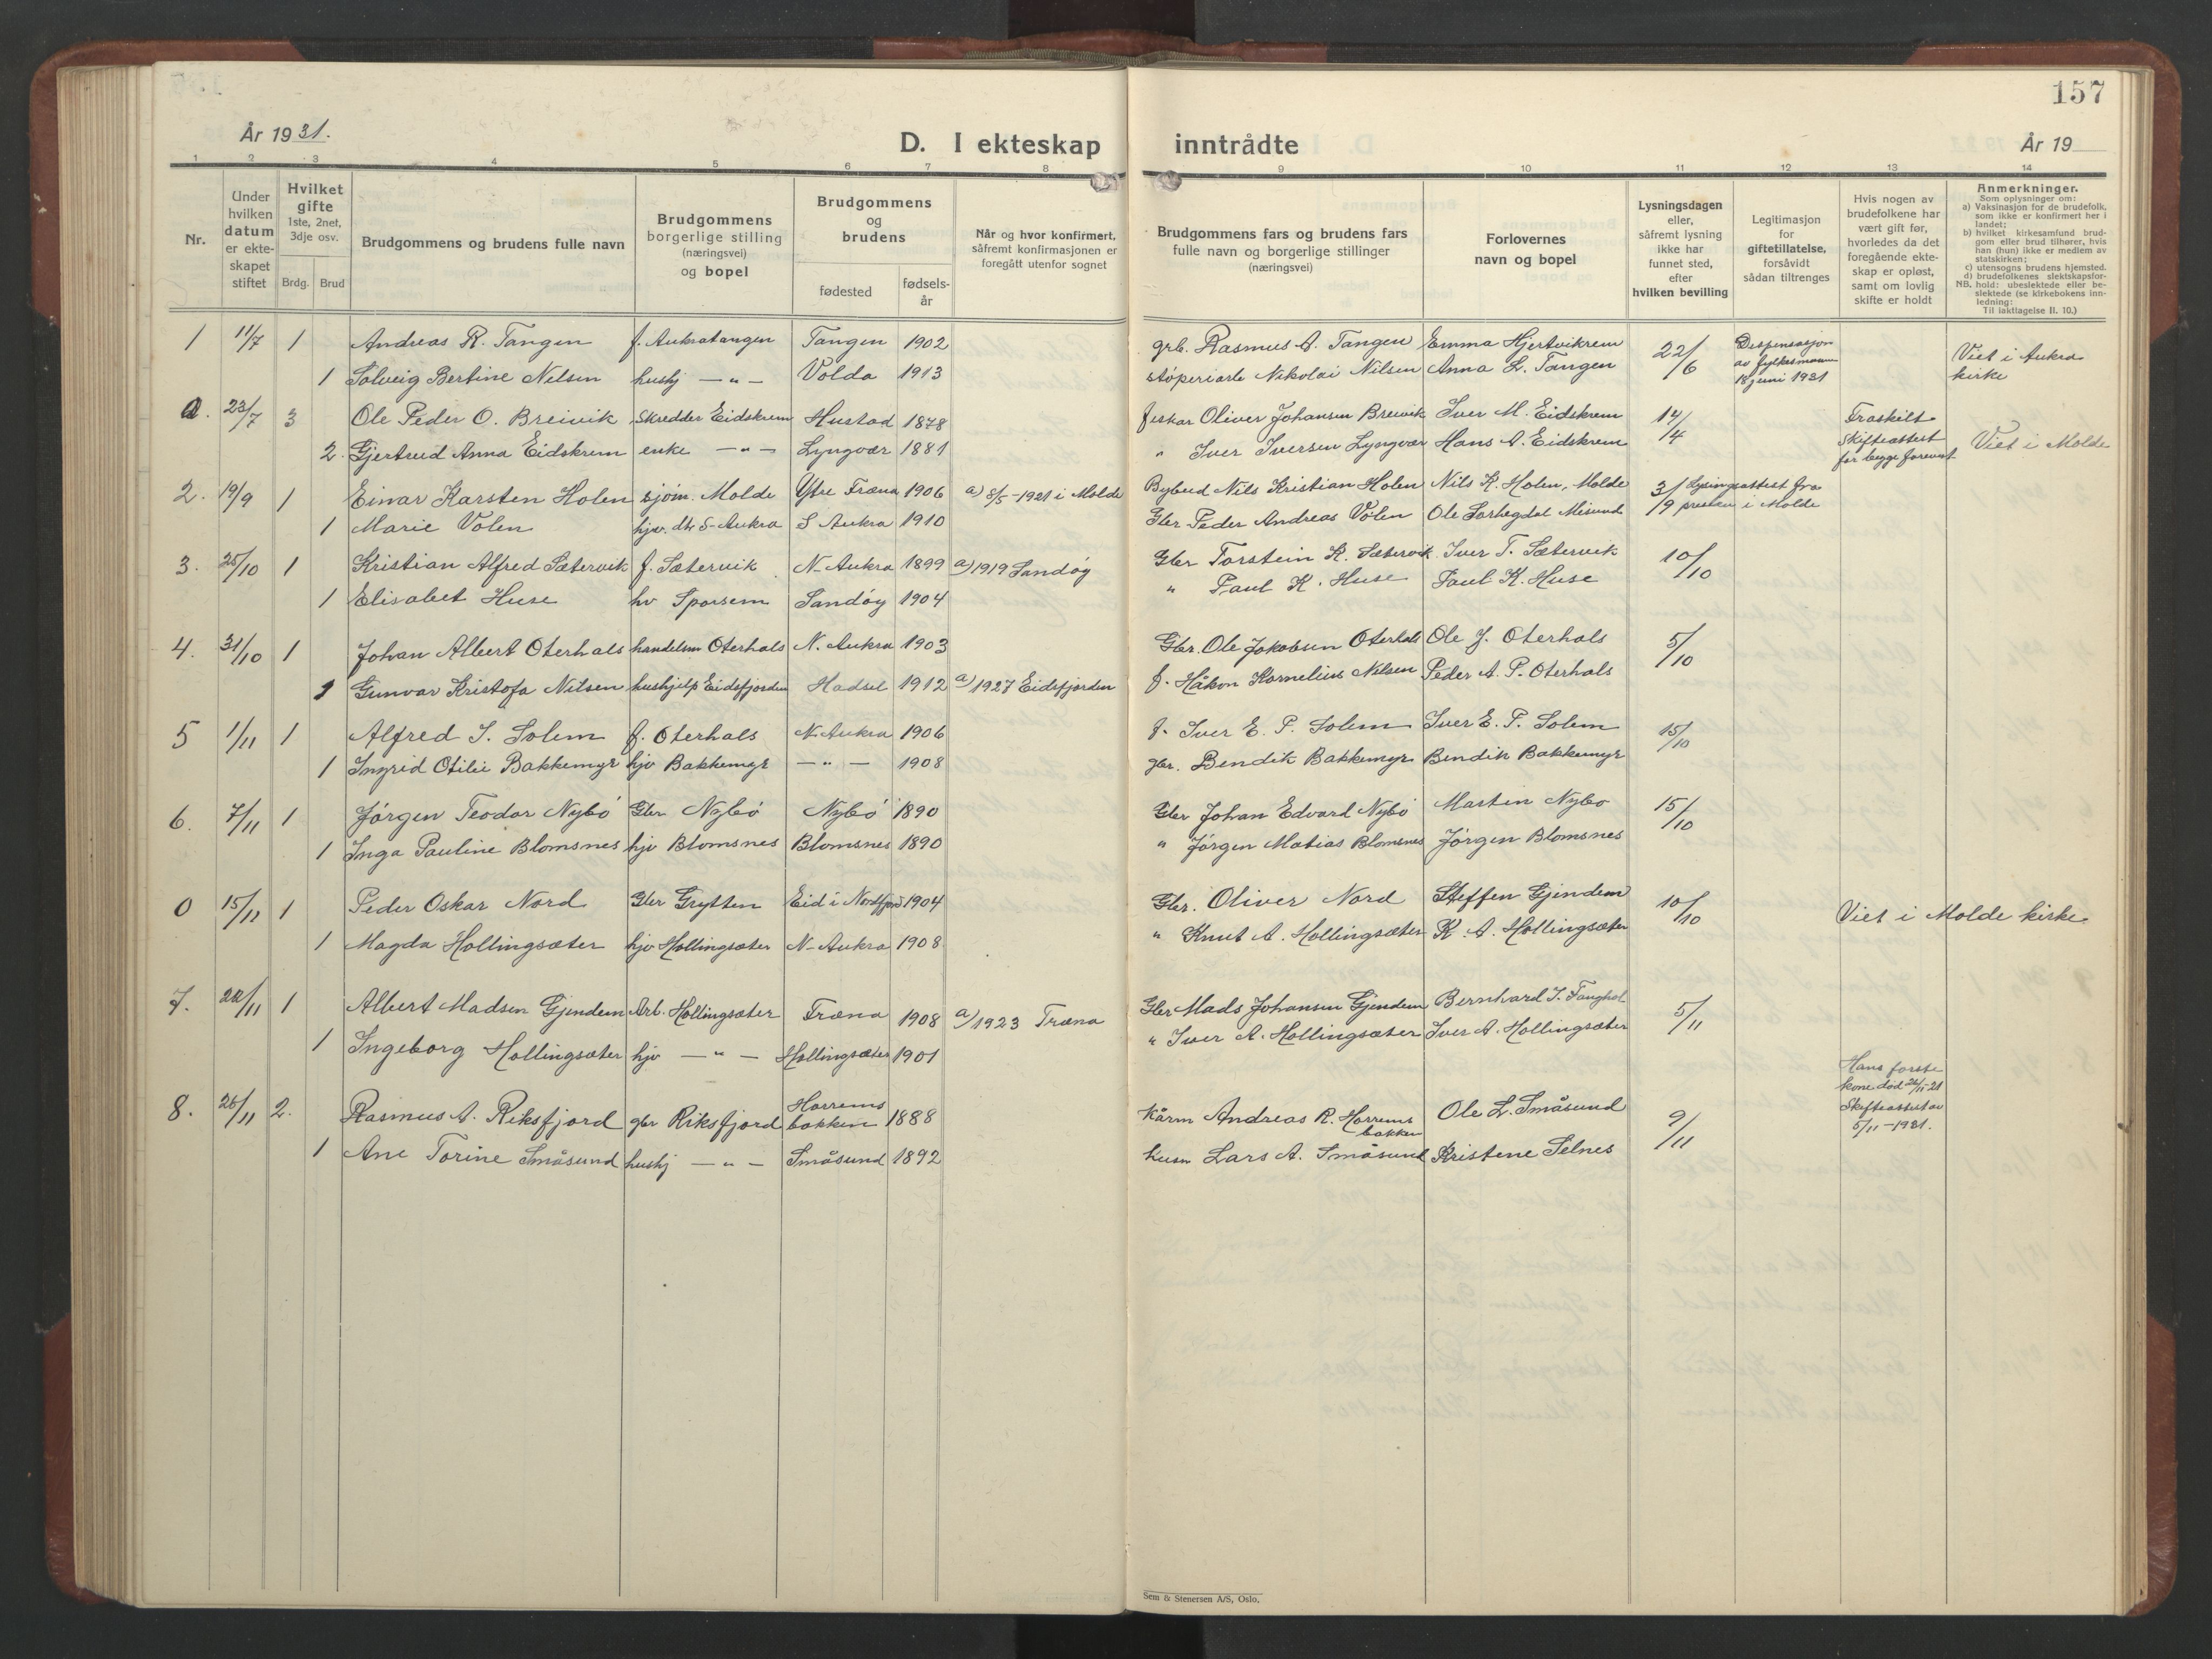 157
År 1931.
D. I ekteskap inntrådte
År 19
1 2 3 4 5 6 7 8 9 10 11 12 13 14
Nr.
Under hvilken datum er ekte-skapet stiftet
Hvilket gifte 1ste, 2net, 3dje osv.
Brdg. Brud
Brudgommens og brudens fulle navn
Brudgommens borgerlige stilling (næringsvei) og bopel
Brudgommens og brudens
fødested
fødsels-år
Når og hvor konfirmert, såfremt konfirmasjonen er foregått utenfor sognet
Brudgommens fars og brudens fars fulle navn og borgerlige stillinger (næringsvei)
Forlovernes navn og bopel
Lysningsdagen eller, såfremt lysning ikke har funnet sted, efter hvilken bevilling
Legitimasjon for giftetillatelse, forsåvidt sådan tiltrenges
Hvis nogen av brudefolkene har vært gift før, hvorledes da det foregående ekte-skap er opløst, samt om lovlig skifte er holdt
Anmerkninger.
Som oplysninger om:
a) Vaksinasjon for de brudefolk, som ikke er konfirmert her i landet;
b) hvilket kirkesamfund brud-gom eller brud tilhører, hvis han (hun) ikke er medlem av statskirken;
c) utensogns brudens hjemsted.
d) brudefolkenes slektskapsfor-hold: ubeslektede eller be-slektede (se kirkebokens inn-ledning:
NB.
Til iakttagelse II. 10.)
1 11/7 1 Andreas R. Tangen f. Aukratangen Tangen 1902 grb. Rasmus A. Tangen Emma Hjertvikrem 22/6 Dispensasjon av fylkesmann 18 juni 1931 Viet i Aukra kirke
1 Solveig Bertine Nilsen hushj — " — Volda 1913 støperiarb Nikolai Nilsen Anna L. Tangen
0. 23/7 3 Ole Peder O. Breivik Skredder Eidskrem Hustad 1878 fiskar Oliver Johansen Breivik Iver M. Eidskrem 14/4 Fraskilt Skifteattest for begge forevist Viet i Molde
2. Gjertrud Anna Eidskrem enke — " — Lyngvær 1881 " Iver Iversen Lyngvær Hans A. Eidskrem
2. 19/9 1 Einar Karsten Holen sjøm. Molde Ytre Fræna 1906 a) 8/5-1921 i Molde Bybud Nils Kristian Holen Nils K. Holen, Molde 3/9 Lysingsattest fra presten i Molde
1 Marie Volen hjv. dtr S-Aukra S Aukra 1910 Gbr Peder Andreas Volen Ole
3. 25/10 1 Kristian Alfred Sætervik f. Sætervik N-Aukra 1899 a) 1919 Sandøy Gbr Torstein K. Sætervik Iver T. Sætervik 10/10
1 Elisabet Huse hv Sporsem Sandøy 1904 " Paul K. Huse Paul K. Huse
4. 31/10 1 Johan Albert Oterhals handelsm Oterhals N. Aukra 1903 Gbr. Ole Jakobsen Oterhals Ole J. Oterhals 5/10
1 Gunvor Kristofa Nilsen hushjelp Eidsfjorden Hadsel 1912 a) 1927 Eidsfjorden f. Håkon Kornelius Nilsen Peder A. P. Oterhals
5 1/11 1 Alfred I. Solem f. Oterhals N-Aukra 1906 f. Iver E. P. Solem Iver E. P. Solem 15/10
1 Ingrid Otilie Bakkemyr hjv Bakkemyr — " — 1908 gbr. Bendik Bakkemyr Bendik Bakkemyr
6. 7/11 1 Jørgen Teodor Nybø Gbr Nybø Nybø 1890 Gbr Johan Edvard Nybø Martin Nybø 15/10
1 Inga Pauline Blomsnes hjv Blomsnes Blomsnes 1890 " Jørgen Matias Blomsnes Jørgen Blomsnes
0 15/11 1 Peder Oskar Nord Gbr Grytten Eid i Nordfjord 1904 Gbr. Oliver Nord Steffen Gjendem 10/10 Viet i Molde kirke
1 Magda Hollingsæter hjv Hollingsæter N-Aukra 1908 " Knut A. Hollingsæter K. A. Hollingsæter
7. 22/11 1 Albert Madsen Gjendem Arb. Hollingsæter Fræna 1908 a) 1923 Fræna Gbr Mads Johansen Gjendem Bernhard J. 5/11
1 Ingeborg Hollingsæter hjv — " — Hollingsæter 1901 " Iver A. Hollingsæter Iver A. Hollingsæter
8. 26/11 2. Rasmus A. Riksfjord gbr Riksfjord Horremsbakken 1888 kårm Andreas R. Horremsbakken Ole L. Småsund 9/11 Hans første kone død 21/11-21 Skifteattest av 5/11-1931.
1 Ane Torine Småsund hushj — " — Småsund 1892 husm Lars A. Småsund Kristene Selnes
Sem & Stenersen A/S, Oslo.